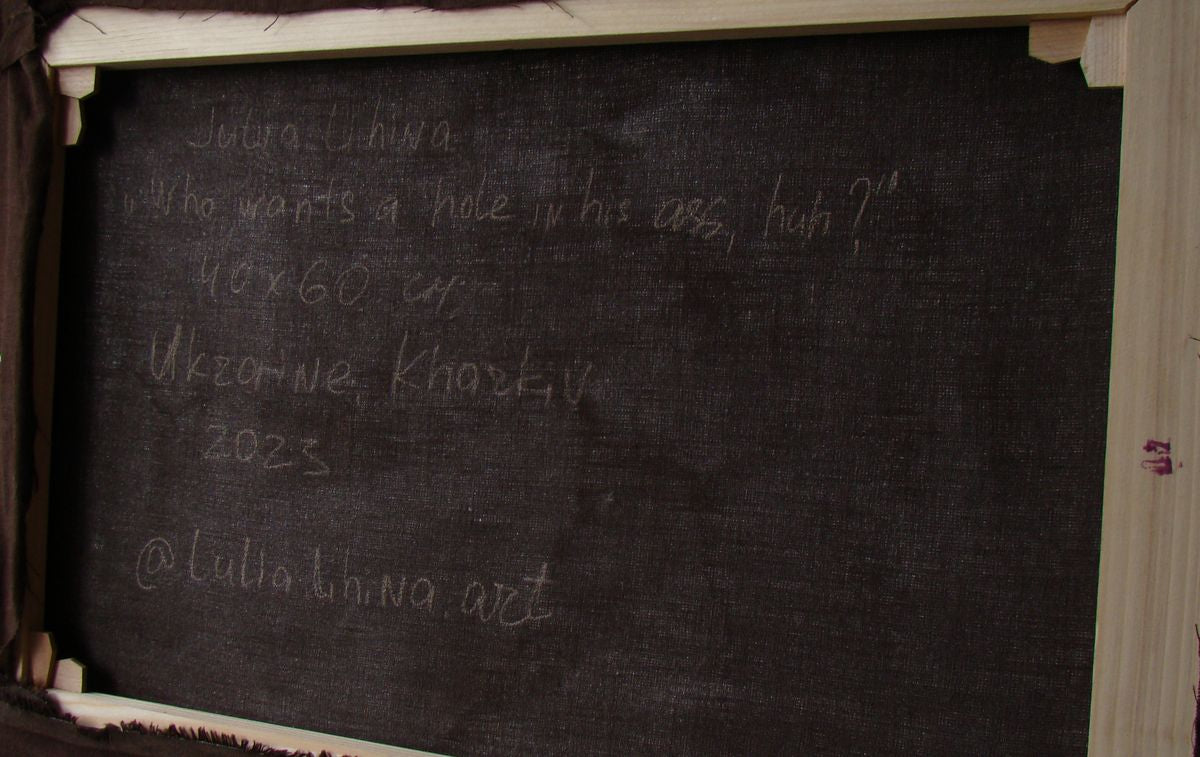 Julia Tihina
„Who wants a hole in his ass, huh?"
40x60 см,
Ukraine, Kharkiv
2023
@iulia.tihina.art